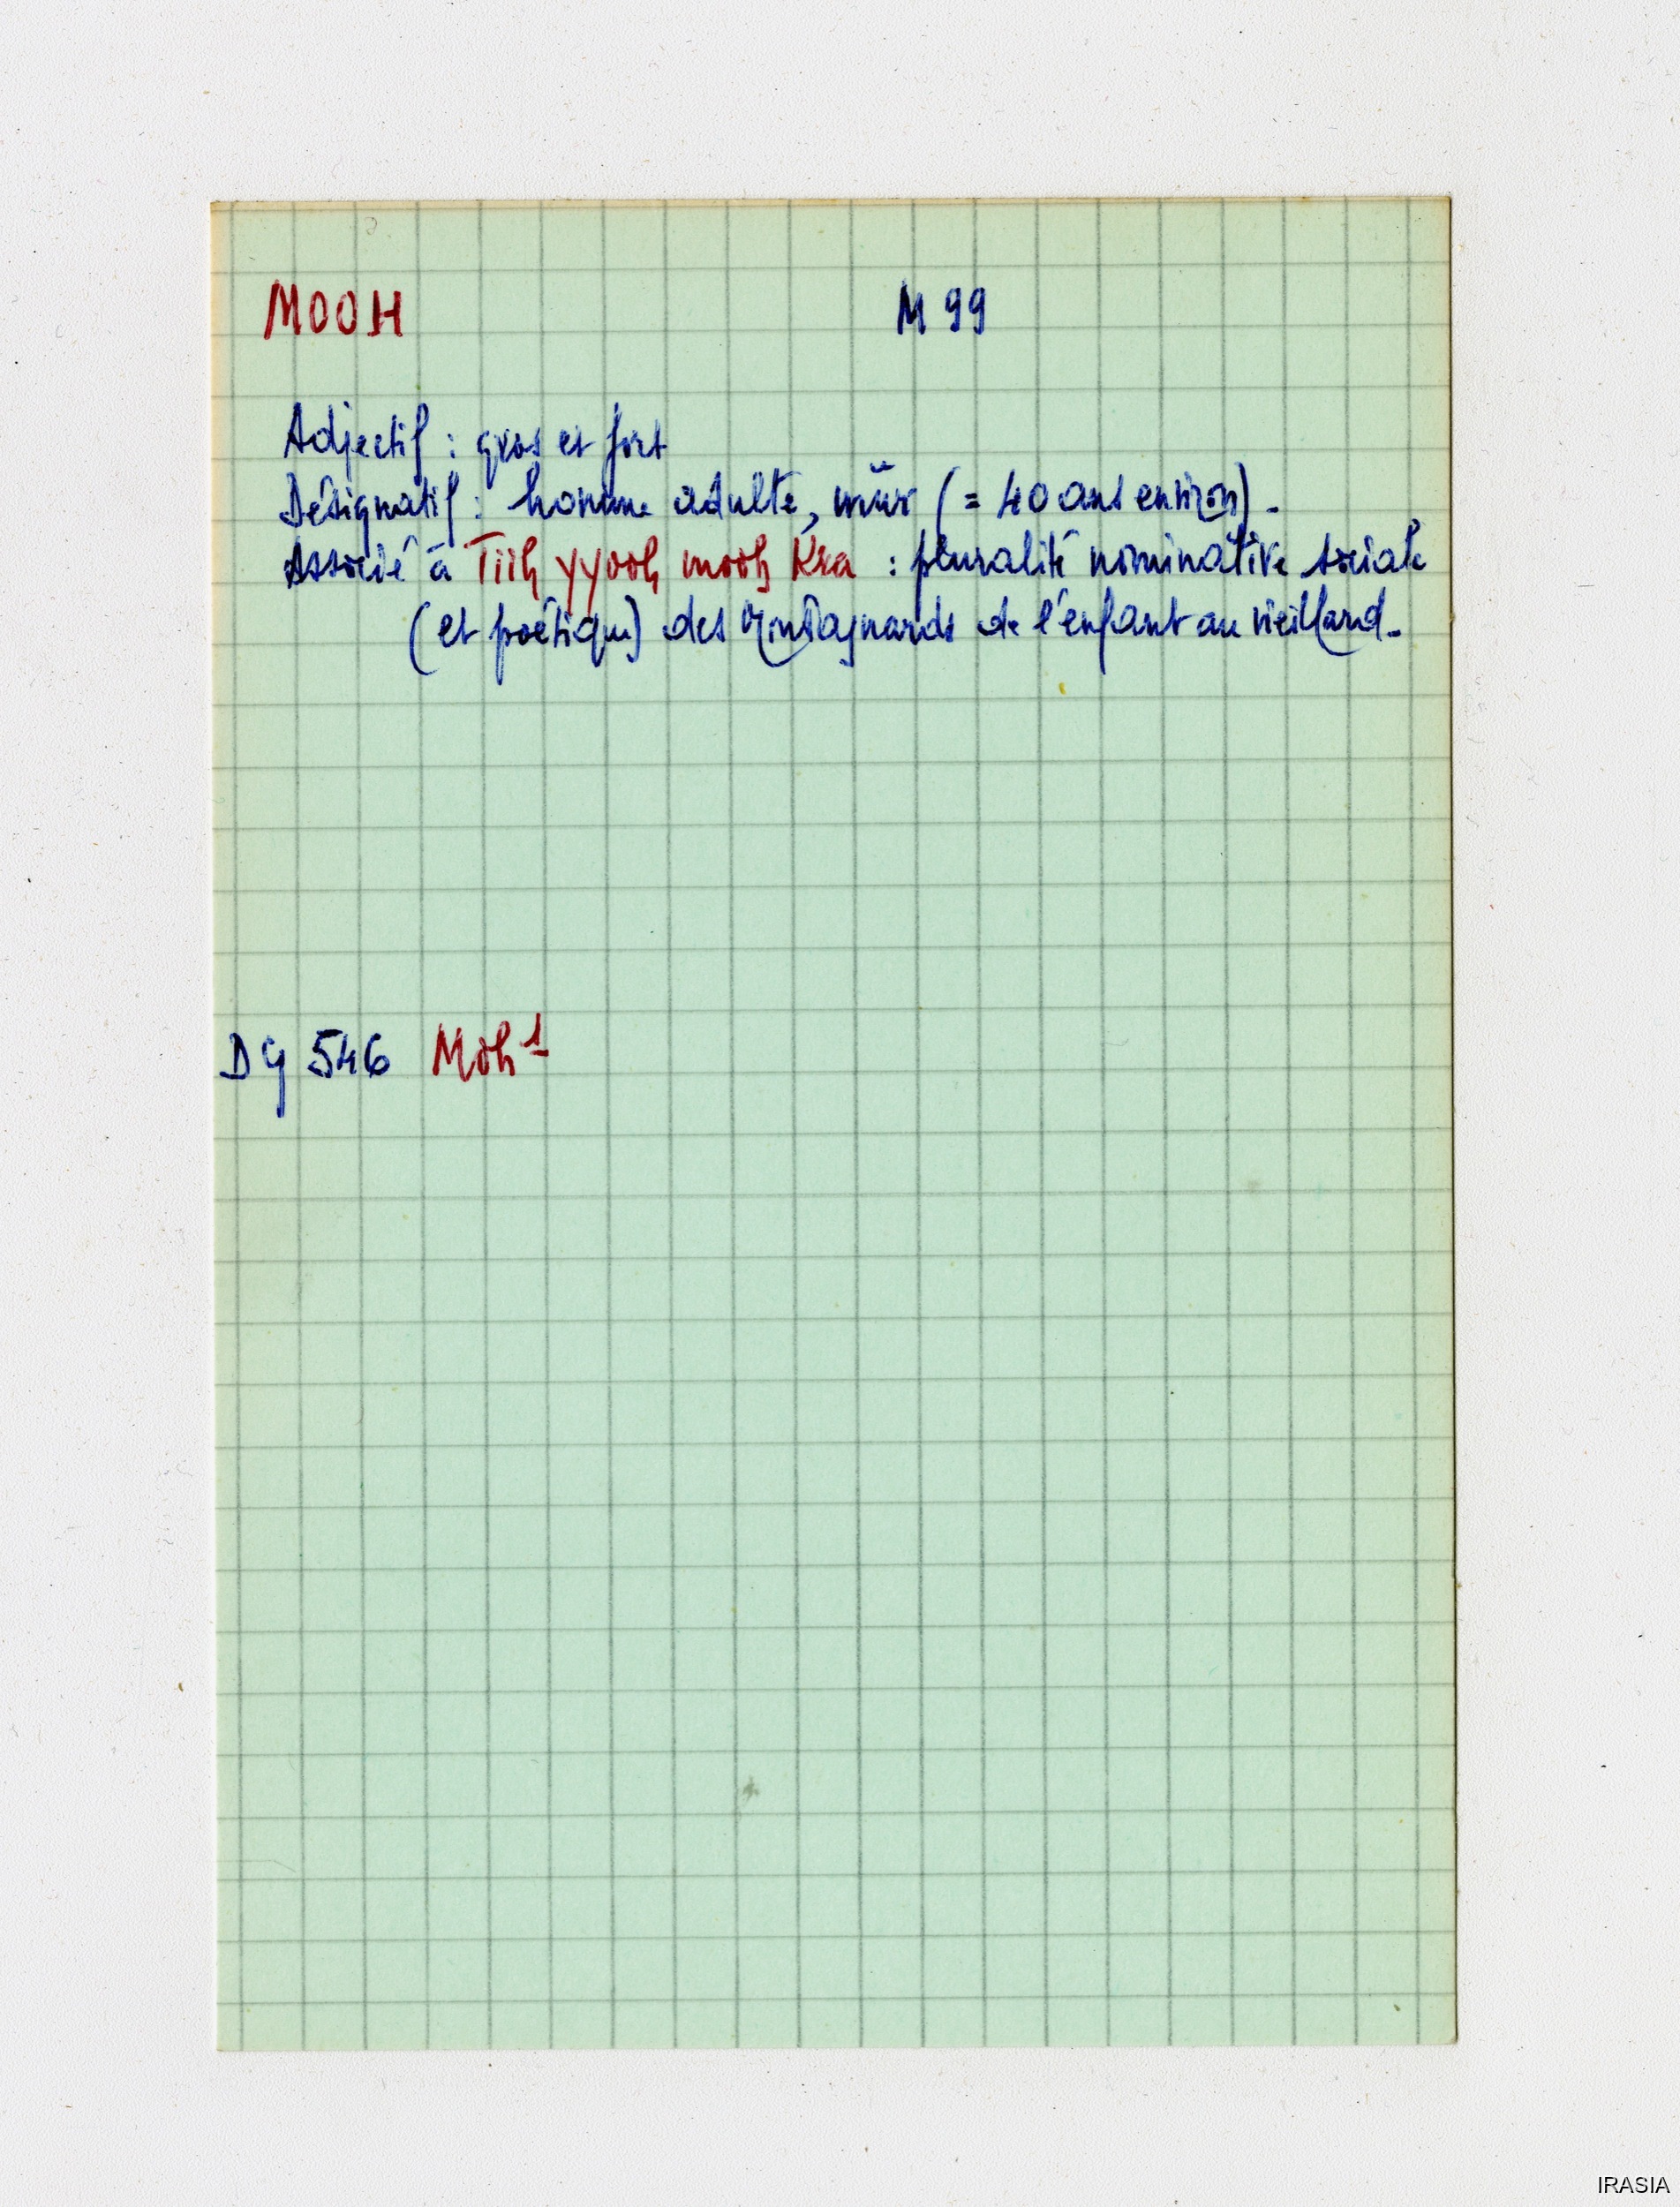 MOOH M 99
Adjectif : gros et fort
Désignatif : homme adulte, mûr (= 40 ans environ).
Associé à Tiih yyooh mooh Kra : pluralité nominative sociale
(et poétique) des Montagnards de l'enfant au vieillard.
DG 546 Möh 1
IRASIA